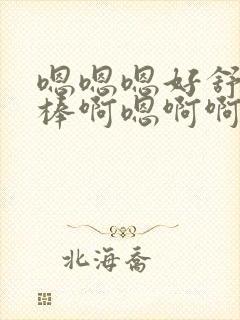 嗯嗯嗯好舒
棒啊嗯啊啊
北海喬